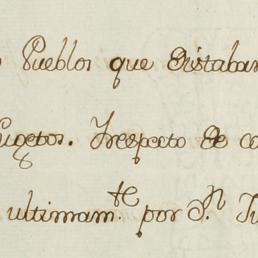 Pueblos que distaban
Sugetos. Respecto de co
ultimam.te por S.n Ju